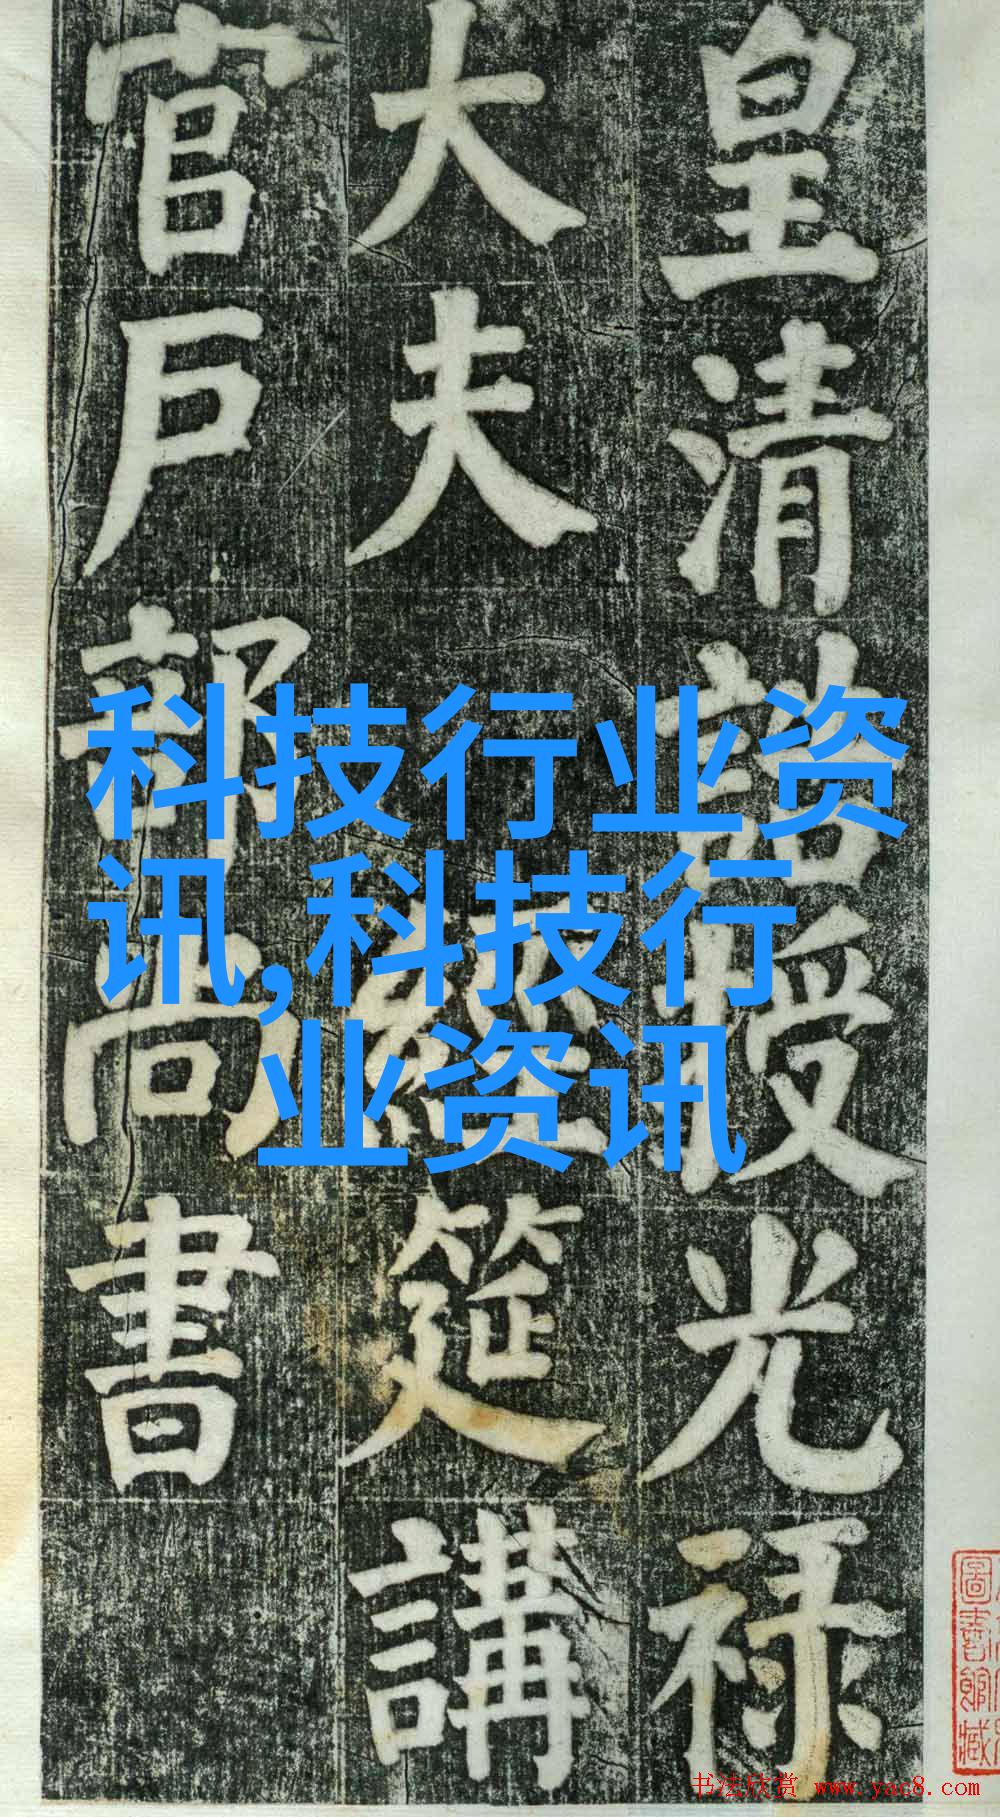 皇清誥授光禄
大夫經筵講
官戸部尚書
科技行业资
讯,科技行
业资讯
圖書館藏
书法欣赏 www.yac8.com